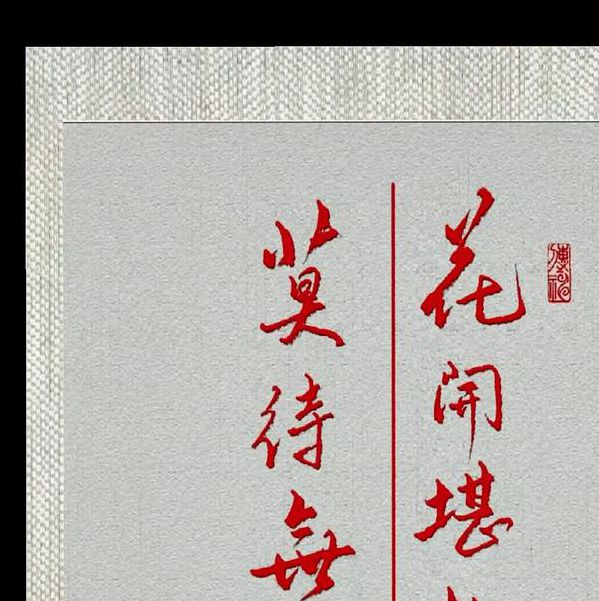 花開堪
莫待無